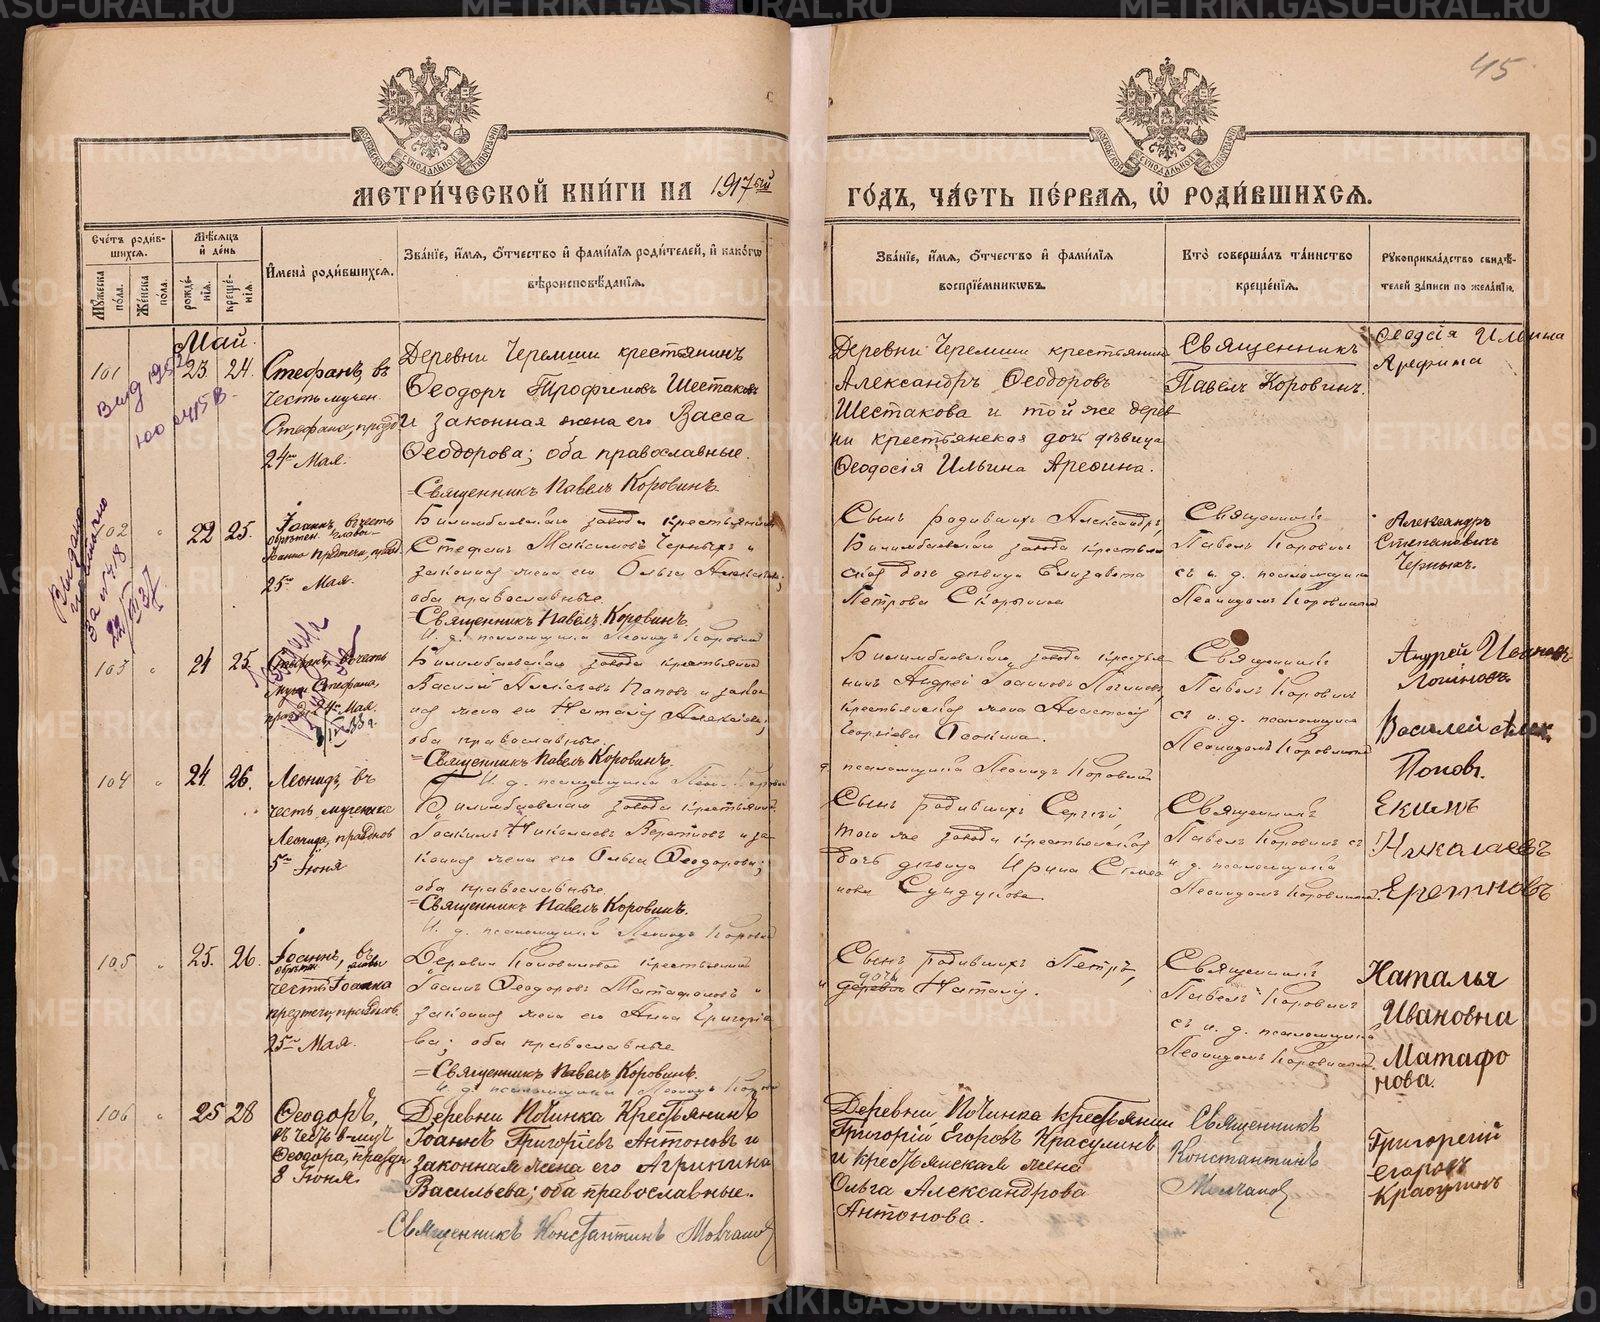 45
МЕТРИ́ЧЕСКОЙ КНИ́ГИ НА 1917ый ГО́ДЪ, ЧА́СТЬ ПЕ́РВАЯ, Ѡ҆ РОДИ́ВШИХСЯ.
Сче́тъ роди́в-
шихся.
Мꙋ́жеска по́ла.
Же́нска по́ла.
Мѣ́сяцъ
и҆ де́нь
рожде́-
нїѧ.
креще́-
нїѧ.
И҆мена̀ роди́вшихся.
Зва́нїе, и҆́мѧ, ѻ҆́тчество и҆ фами́лїѧ роди́телей, и҆ како́гѡ
вѣроисповѣ́данїѧ.
Зва́нїе, и҆́мѧ, ѻ҆́тчество и҆ фами́лїѧ
воспрїе́мникѡвъ.
Кто̀ соверша́лъ та́инство
креще́нїѧ.
Рꙋкоприкла́дство свидѣ́-
телей за́писи по жела́нїю.
Май.
101
23. 24.
Стефанъ, въ
честь мучен.
Стефана, празд
24го Мая.
Деревни Черемши крестьянинъ
Ѳеодоръ Трофимовъ Шестаковъ
и законная жена его Васса
Ѳеодорова; оба православные.
=Священникъ Павелъ Коровинъ.
Деревни Черемши крестьянинъ
Александръ Ѳеодоровъ
Шестакова и той же дерев
ни крестьянская дочь дѣвица
Ѳеодосія Ильина Арефина.
Священникъ
Павелъ Коровинъ.
Ѳеодсія Ильина
Арефина
102
22 25.
Іоаннъ, въ честь
обрѣтен. главы
Іоанна Предтечи, празд
25го Мая.
Билимбаевскаго завода крестьянинъ
Стефанъ Максимовъ Черныхъ и
законная жена его Ольга
оба православные.
=Священникъ Павелъ Коровинъ.
И. д. псаломщика Леонидъ Коровин
Сынъ родившихъ Александръ,
Билимбаевскаго завода крестьян
ская дочь дѣвица Елизавета
Петрова Скорынина
Священникъ
Павелъ Коровинъ
съ и. д. псаломщика
Леонидомъ Коровинымъ
Александръ
Степановичъ
Черныхъ.
103
24 25.
Стефанъ, въ честь
муч. Стефана,
праздн. 24го Мая.
Билимбаевскаго завода крестьянинъ
Василій Алексѣевъ Поповъ и закон
ная жена его Наталія Алексѣева;
оба православные.
=Священникъ Павелъ Коровинъ.
И. д. псаломщика
Билимбаевскаго завода крестья
нинъ Андрей Іоанновъ Логиновъ,
крестьянская жена Анастасія
Георгіева Осокина.
д. псаломщика Леонидъ Коровин
Священникъ
Павелъ Коровинъ
съ и. д. псаломщика
Леонидомъ Коровинымъ
Андрей Ивановъ
Логиновъ.
Василей Алек.
Поповъ.
104
24. 26.
Леонидъ, въ
честь мученика
Леонида, празднов
5го Іюня
Билимбаевскаго завода крестьянинъ
Іоакимъ Николаевъ Еретновъ и за
конная жена его Ольга Ѳеодорова;
оба православные.
=Священникъ Павелъ Коровинъ.
И. д. псаломщика Леонидъ Коровин
Сынъ родившихъ Сергій,
того же завода крестьянская
дочь дѣвица Ирина Симео
нова Сундукова
Священникъ
Павелъ Коровинъ съ
и. д. псаломщика
Леонидомъ Коровинымъ.
Екимъ
Николаевъ
Еретновъ
105
25. 26.
Іоаннъ, въ
обрѣтен. главы
честь Іоанна
предтечи, празднов.
25го Мая.
Деревни Коноваловой крестьянинъ
Іоаннъ Ѳеодоровъ Матафоновъ и
законная жена его Анна Григорье
ва; оба православные
=Священникъ Павелъ Коровинъ.
И. д. псаломщика Леонидъ Корови
Сынъ родившихъ Петръ,
дочь
и деревни Наталія.
Священникъ
Павелъ Коровинъ
съ и. д. псаломщика
Леонидомъ Коровинымъ.
Наталья
Ивановна
Матафо
нова.
106
25 28
Ѳеодоръ,
въ честь в-муч
Ѳеодора, праздн
8 Іюня.
Деревни Починка Крестьянинъ
Іоаннъ Григоріевъ Антоновъ и
законная жена его Агрипина
Васильева; оба православные.
Священникъ Константинъ Молчанов
Деревни Починка крестьянин
Григорій Егоровъ Красулинъ
и крестьянская жена
Ольга Александрова
Антонова.
Священникъ
Константинъ
Молчанов
Григорегий
егаровъ
Красулинъ
Выдано
За №478
METRIKI.GASO-URAL.RU